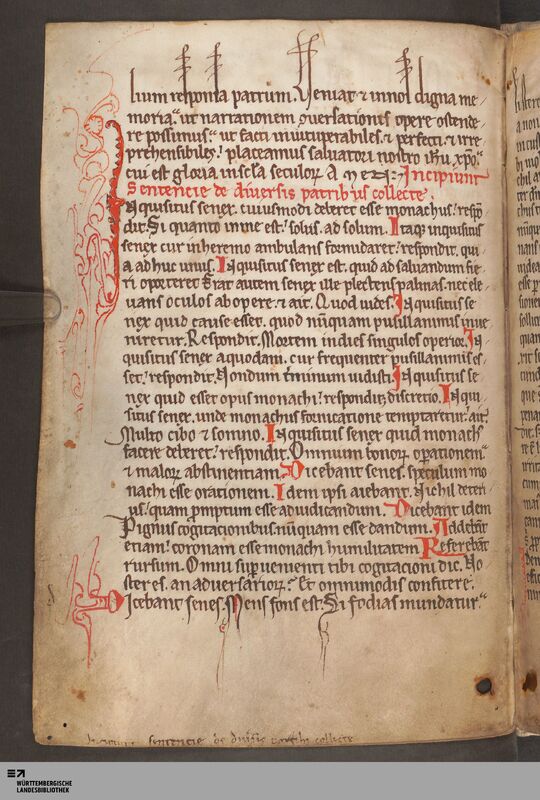 lium responsa patrum. Veniat & in nos digna me-
moria. ut narrationem ɔuersationis opere ostende-
re possimus. ut facti inuituperabiles. & perfecti. & irre-
prehensibiles. placeamus saluatori nostro ihu xpo.
cui est gloria in scla seculoꝝ. A M E N. Incipiunt
sentencie de diuersis patribus collecte.
Inquisitus senex. cuiusmodi deberet esse monachus. respō
dit. Si quanto in me est. solus. ad solum. Itaqꝫ inquisitus
senex cur in heremo ambulans formidaret. respondit. qui
a adhuc uiuus. Inquisitus senex est. quid ad saluandum fie-
ri oporteret. Erat autem senex ille plectens palmas. nec ele
uans oculos ab opere. & ait. Quod uides. Inquisitus se
nex quid cause esset. quod nūquam pusillanimis inue
niretur. Respondit. Mortem in dies singulos operior. In
quisitus senex a quodam. cur frequenter pusillanimis es
set. respondit. Nondum tminum uidisti. Inquisitus se
nex quid esset opus monachi. respondit. discretio. Inqui
situs senex. unde monachus fornicatione temptaretur. ait.
Multo cibo & somno. Inquisitus senex quid monachꝰ
facere deberet. respondit. Omnium bonoꝝ operationem
& maloꝝ abstinentiam. Dicebant senes. speculum mo
nachi esse orationem. Idem ipsi aiebant. Nichil deteri
us. quam pmptum esse ad iudicandum. Dicebant idem
Pignus cogitacionibus. nūquam esse dandum. Addebāt
etiam. coronam esse monachi humilitatem. Referebāt
rursum. Omni superuenienti tibi cogitacioni dic. No
ster es. an aduersarioꝝ. Et omnimodis confitere.
Dicebant senes. Mens fons est. Si fodias mundatur.
sentencie de diuersis collecte
WÜRTTEMBERGISCHE
LANDESBIBLIOTHEK